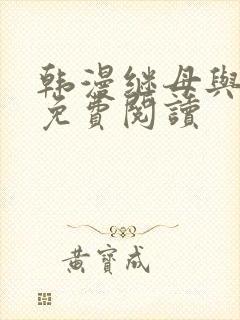 韩漫继母與
免費閱讀
黃寶成